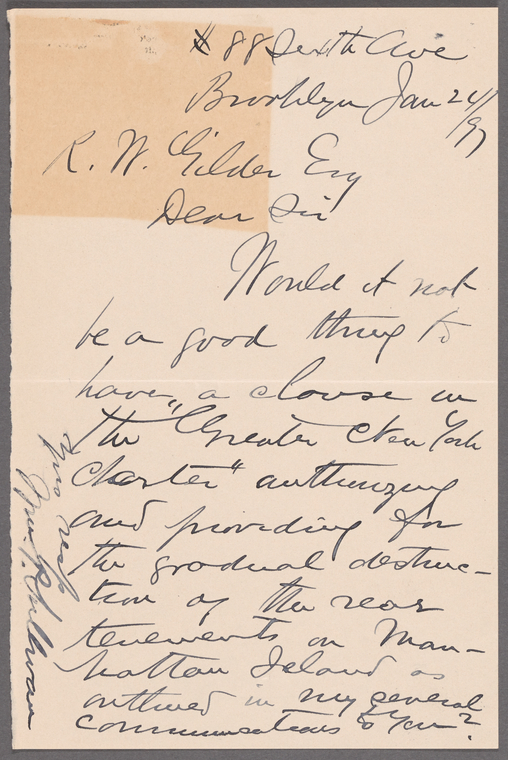 88 Sixth Ave
Brooklyn Jan 24/97
R. W. Gilder Esq
Dear Sir
Would it not
be a good thing to
have a clause in
the "Greater New York
Charter" authorizing
and providing for
the gradual destruc-
tion of the rear
tenements on Man-
hattan Island as
outlined in my several
communications to you?
Yrs resp